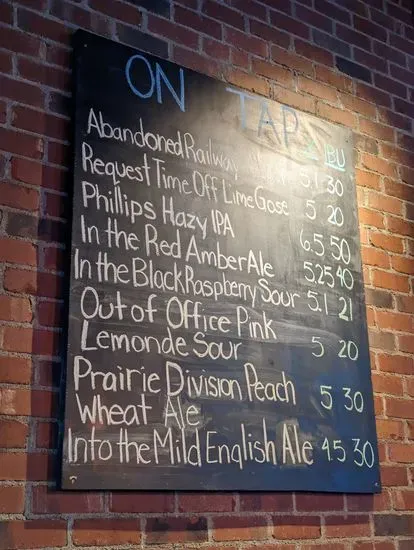 ON TAP % IBU
Abandoned Railway 5.1 30
Request Time Off Lime Gose 5 20
Phillips Hazy IPA 6.5 50
In the Red Amber Ale 5.25 40
In the Black Raspberry Sour 5.1 21
Out of Office Pink
Lemonde Sour 5 20
Prairie Division Peach 5 30
Wheat Ale
Into the Mild English Ale 4.5 30